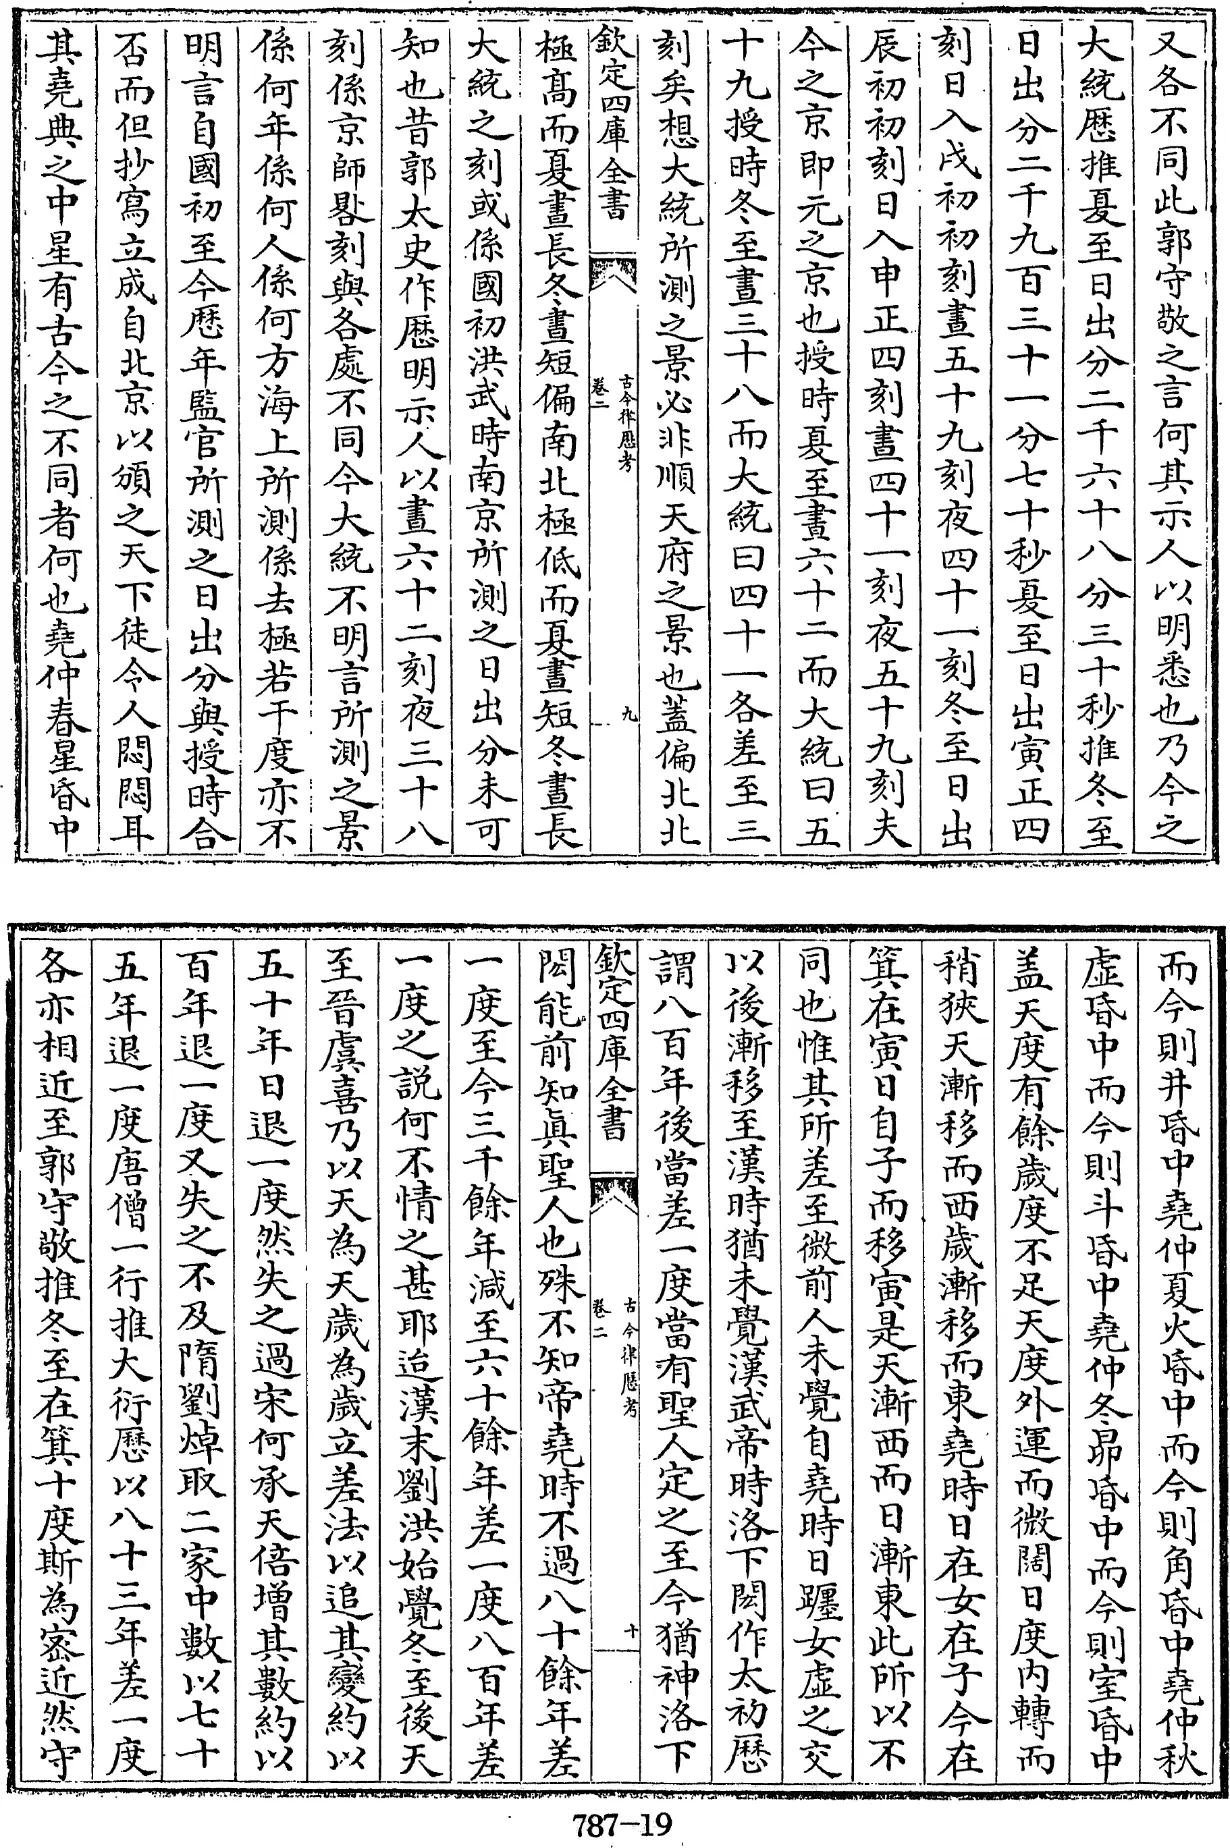 又各不同此郭守敬之言何其示人以明悉也乃今之
大統歴推夏至日出分二千六十八分三十秒推冬至
日出分二千九百三十一分七十秒夏至日出寅正四
刻日入戌初初刻晝五十九刻夜四十一刻冬至日出
辰初初刻日入申正四刻晝四十一刻夜五十九刻夫
今之京即元之京也授時夏至晝六十二而大統曰五
十九授時冬至晝三十八而大統曰四十一各差至三
刻矣想大統所測之景必非順天府之景也蓋偏北北
欽定四庫全書
古今律歴考
卷二
九
極高而夏晝長冬晝短偏南北極低而夏晝短冬晝長
大統之刻或係國初洪武時南京所測之日出分未可
知也昔郭太史作歴明示人以晝六十二刻夜三十八
刻係京師晷刻與各處不同今大統不明言所測之景
係何年係何人係何方海上所測係去極若干度亦不
明言自國初至今歴年監官所測之日出分與授時合
否而但抄寫立成自北京以頒之天下徒令人悶悶耳
其堯典之中星有古今之不同者何也堯仲春星昏中
而今則井昏中堯仲夏火昏中而今則角昏中堯仲秋
虛昏中而今則斗昏中堯仲冬昴昏中而今則室昏中
盖天度有餘歲度不足天度外運而微闊日度内轉而
稍狹天漸移而西歲漸移而東堯時日在女在子今在
箕在寅日自子而移寅是天漸西而日漸東此所以不
同也惟其所差至微前人未覺自堯時日躔女虛之交
以後漸移至漢時猶未覺漢武帝時洛下閎作太初歴
謂八百年後當差一度當有聖人定之至今猶神洛下
欽定四庫全書
古今律歴考
卷二
十
閎能前知真聖人也殊不知帝堯時不過八十餘年差
一度至今三千餘年減至六十餘年差一度八百年差
一度之說何不情之甚耶迨漢末劉洪始覺冬至後天
至晉虞喜乃以天為天歲為歲立差法以追其變約以
五十年日退一度然失之過宋何承天倍增其數約以
百年退一度又失之不及隋劉焯取二家中數以七十
五年退一度唐僧一行推大衍歴以八十三年差一度
各亦相近至郭守敬推冬至在箕十度斯為宻近然守
787-19